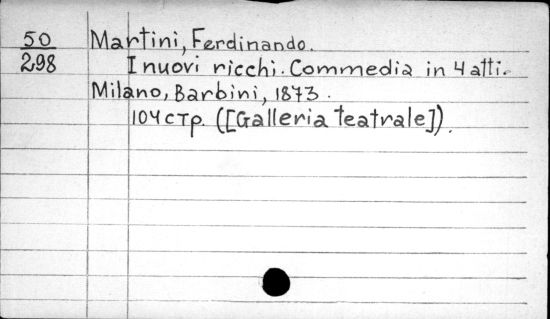 50
298
Martini, Ferdinando.
I nuovi ricchi. Commedia in 4 atti.
Milano, Barbini, 1873.
104 стр. ([Galleria teatrale]).